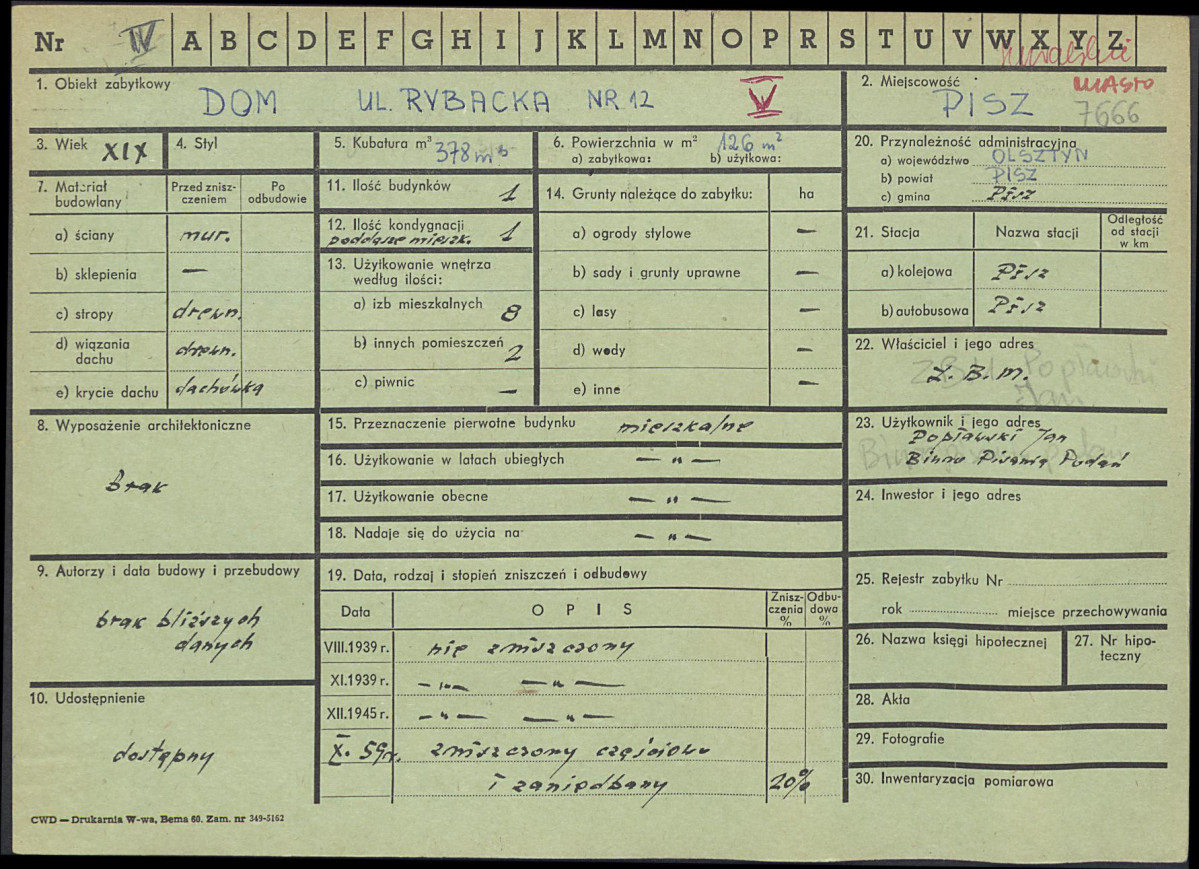 Nr IV A B C D E F G H I J K L M N O P R S T U V W X Y Z
suwalskie
1. Obiekt zabytkowy
DOM UL. RYBACKA NR 12 V
2. Miejscowość
MIASTO
PISZ 7666
3. Wiek XIX
4. Styl
5. Kubatura m³ 378 m³
6. Powierzchnia w m² 126 m²
a) zabytkowa: b) użytkowa:
20. Przynależność administracyjna
a) województwo OLSZTYN
b) powiat PISZ
c) gmina Pisz
7. Materiał budowlany
Przed zniszczeniem
Po odbudowie
a) ściany mur.
b) sklepienia —
c) stropy drewn.
d) wiązania dachu drewn.
e) krycie dachu dachówka
11. Ilość budynków 1
12. Ilość kondygnacji 1
poddasze mieszk.
13. Użytkowanie wnętrza według ilości:
a) izb mieszkalnych 8
b) innych pomieszczeń 2
c) piwnic —
14. Grunty należące do zabytku: ha
a) ogrody stylowe —
b) sady i grunty uprawne —
c) lasy —
d) wody —
e) inne —
21. Stacja
Nazwa stacji
Odległość od stacji w km
a) kolejowa Pisz
b) autobusowa Pisz
22. Właściciel i jego adres
Z.B.M. Popławski
Jan
Z. B. M.
8. Wyposażenie architektoniczne
Brak
15. Przeznaczenie pierwotne budynku mieszkalne
16. Użytkowanie w latach ubiegłych — „ —
17. Użytkowanie obecne — „ —
18. Nadaje się do użycia na — „ —
23. Użytkownik i jego adres
Popławski Jan
Biuro Pisania Podań
24. Inwestor i jego adres
9. Autorzy i data budowy i przebudowy
brak bliższych
danych
10. Udostępnienie
dostępny
19. Data, rodzaj i stopień zniszczeń i odbudowy
Data
OPIS
Zniszczenia %
Odbudowa %
VIII.1939 r. nie zniszczony
XI.1939 r. — „ — — „ —
XII.1945 r. — „ — — „ —
X. 59 r. zniszczony częściowo
i zaniedbany 20%
25. Rejestr zabytku Nr
rok miejsce przechowywania
26. Nazwa księgi hipotecznej
27. Nr hipoteczny
28. Akta
29. Fotografie
30. Inwentaryzacja pomiarowa
CWD — Drukarnia W-wa, Bema 60. Zam. nr 349-5162